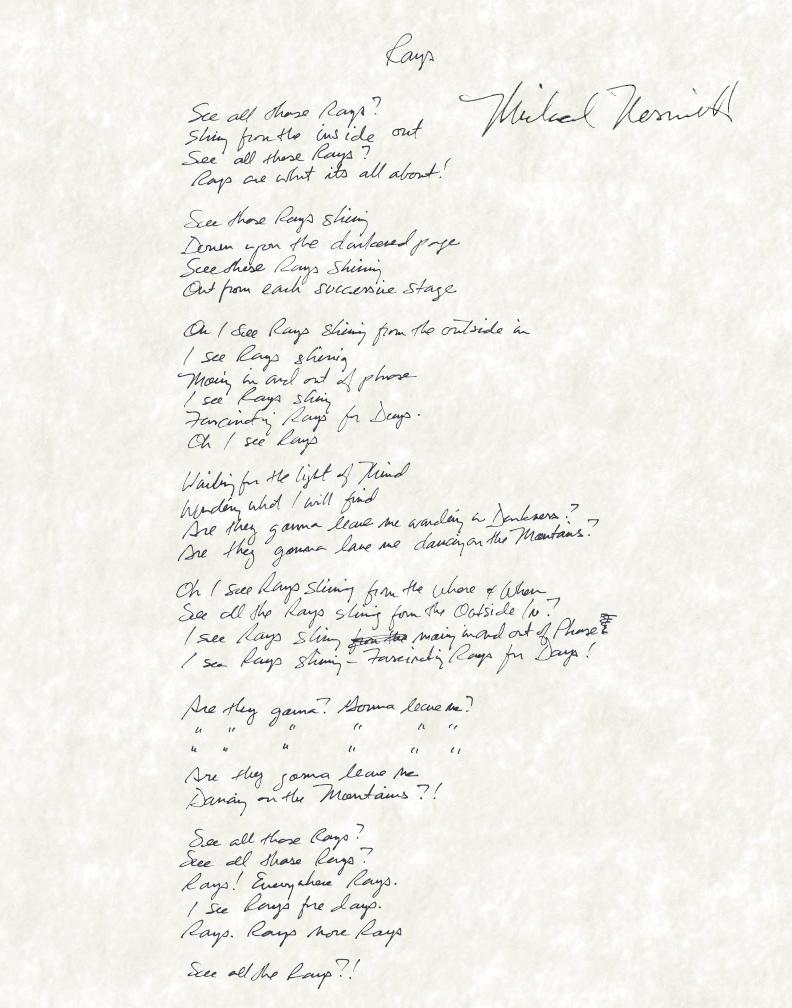 Rays
Michael Nesmith
See all those Rays?
Shing from the inside out
See all these Rays?
Rays are what its all about!
See those Rays shining
Down upon the darkened page
See these Rays Shining
Out from each successive stage
Oh I see Rays shining from the outside in
I see Rays shining
Moving in and out of phase
I see Rays shing
Fascinating Rays for Days.
Oh I see Rays
Waiting for the light of Mind
Wondering what I will find
Are they gonna leave me wandering in Darkness?
Are they gonna leave me dancing on the Mountains?
Oh I see Rays Shining from the Where & When
See all the Rays shing from the Outside In?
I see Rays shing from the moving in and out of Phase
I see Rays shining – Fascinating Rays for Days!
Are they gonna? Gonna leave me?
" " " " " "
" " " " " "
Are they gonna leave me
Dancing on the Mountains?!
See all those Rays?
See all those Rays?
Rays! Everywhere Rays.
I see Rays for days.
Rays. Rays More Rays
See all the Rays?!